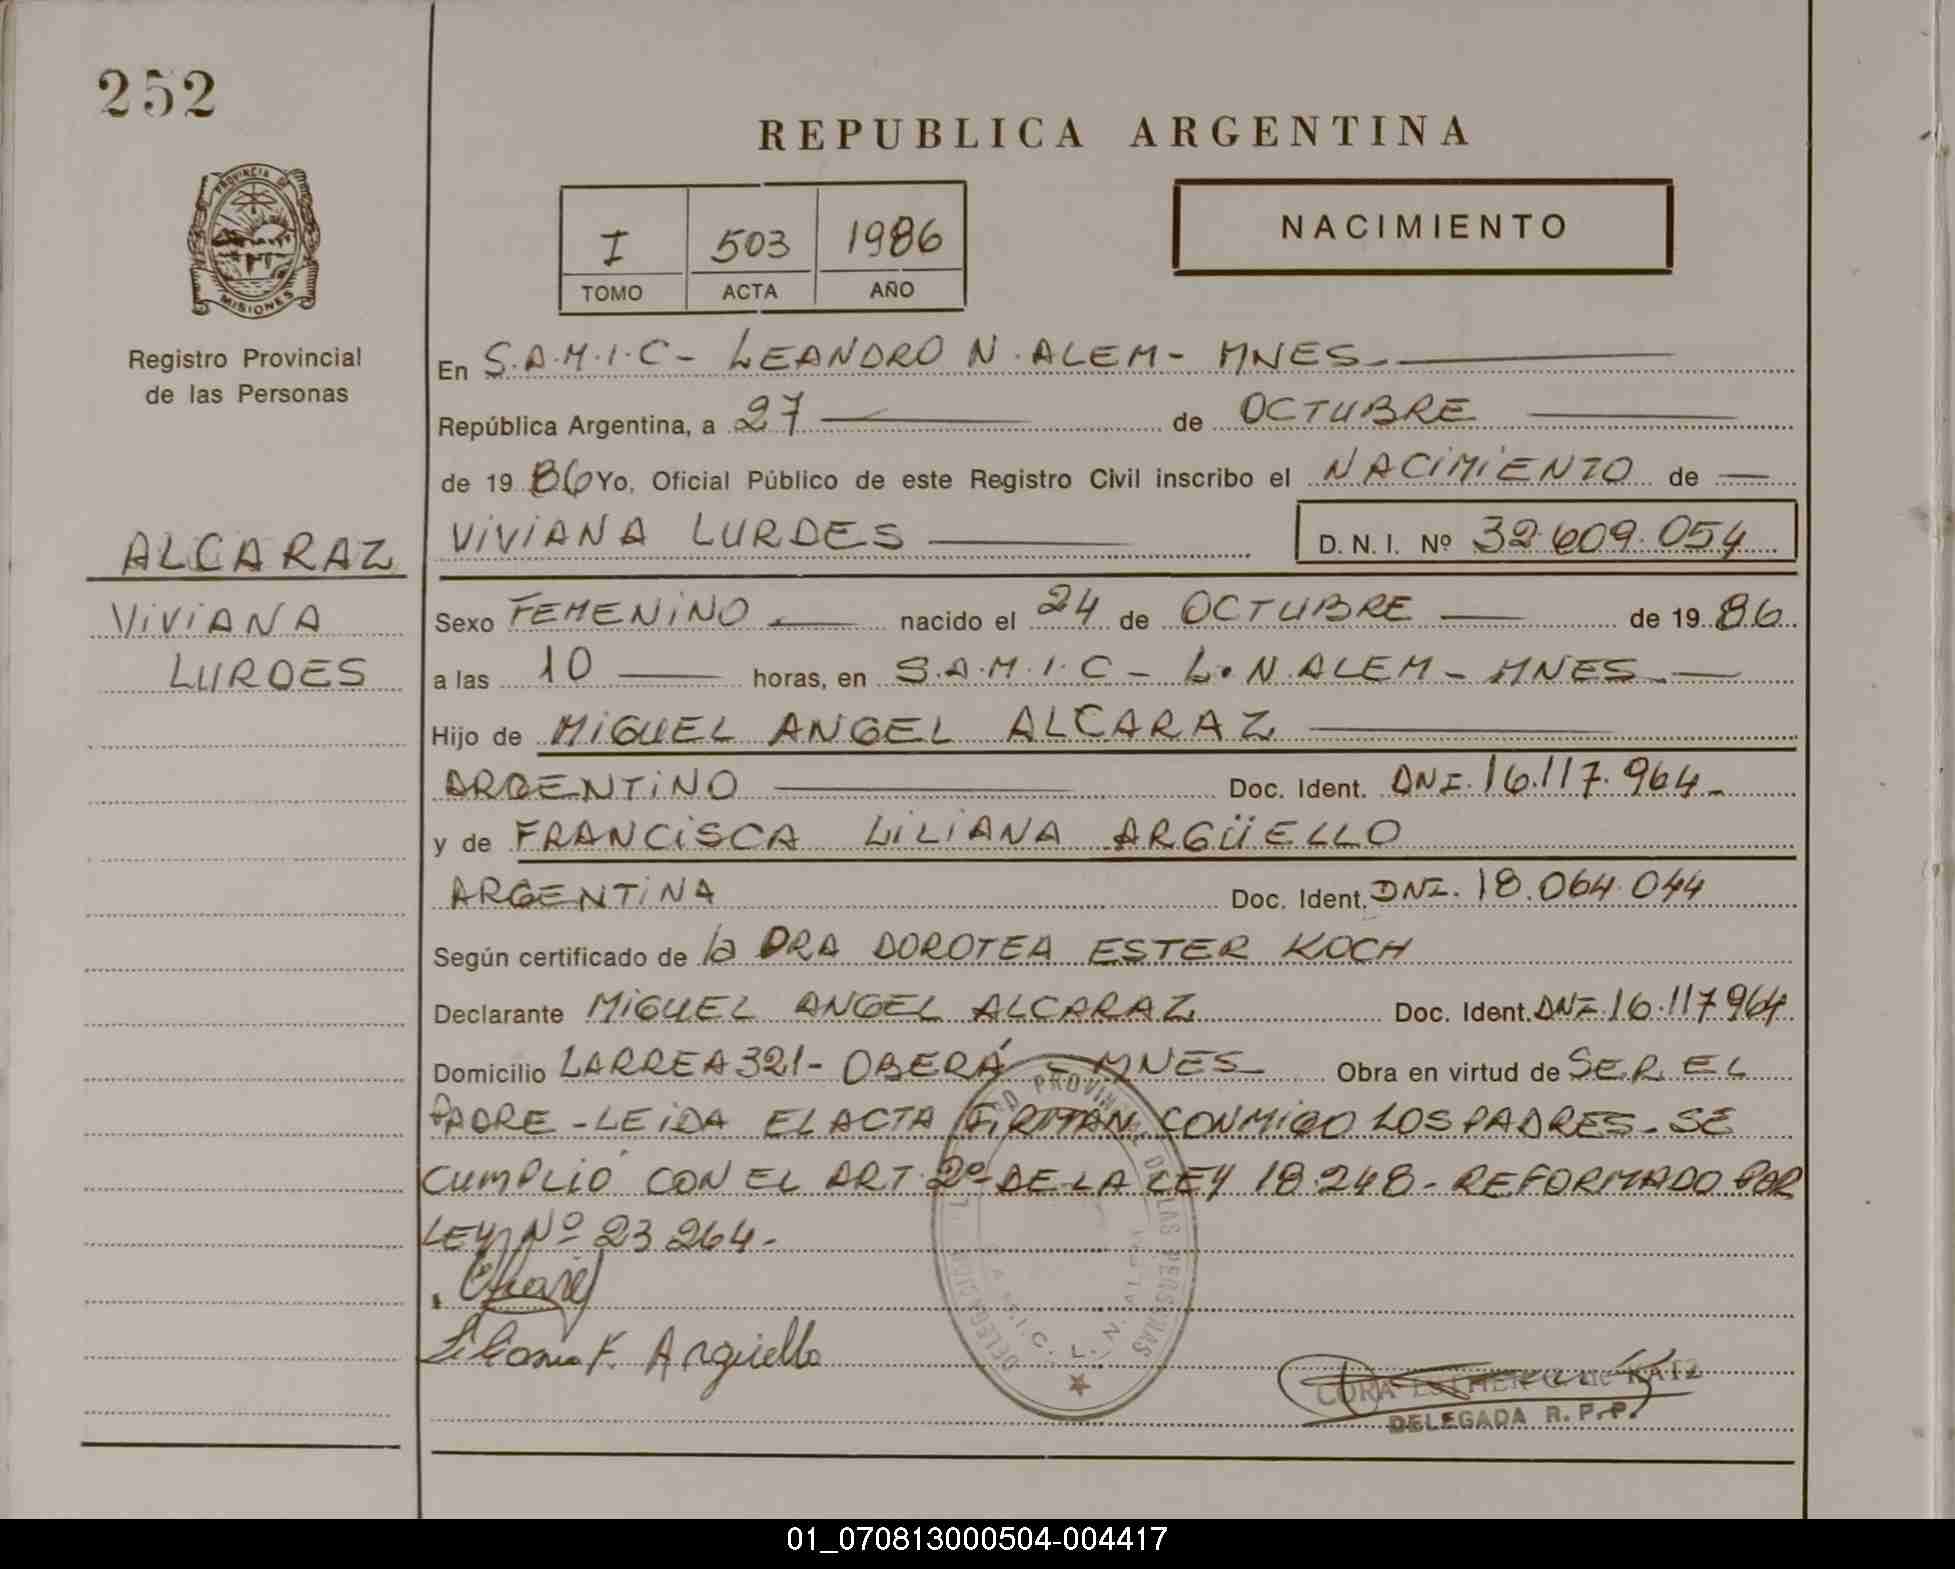 252
REPUBLICA ARGENTINA
PROVINCIA DE
MISIONES
Registro Provincial
de las Personas
I 503 1986
TOMO ACTA AÑO
NACIMIENTO
En S.A.M.I.C - LEANDRO N. ALEM - MNES -
República Argentina, a 27 de OCTUBRE
de 19 86 Yo, Oficial Público de este Registro Civil inscribo el NACIMIENTO de
ALCARAZ
VIVIANA LURDES
D. N. I. Nº 32.609.054
VIVIANA
LURDES
Sexo FEMENINO nacido el 24 de OCTUBRE de 19 86
a las 10 horas, en S.A.M.I.C - L.N.ALEM - MNES -
Hijo de MIGUEL ANGEL ALCARAZ
ARGENTINO Doc. Ident. DNI. 16.117.964 -
y de FRANCISCA LILIANA ARGÜELLO
ARGENTINA Doc. Ident. DNI. 18.064.044
Según certificado de la DRA DOROTEA ESTER KOCH
Declarante MIGUEL ANGEL ALCARAZ Doc. Ident. DNI. 16.117964
Domicilio LARREA 321 - OBERÁ - MNES Obra en virtud de SER EL
PADRE - LEIDA EL ACTA FIRMAN CONMIGO LOS PADRES - SE
CUMPLIÓ CON EL ART. 2º DE LA LEY 18.248 - REFORMADO POR
LEY Nº 23.264 -
Liliana F. Argüello
CORA ESTHER G. de KATZ
DELEGADA R. P. P.
01_070813000504-004417